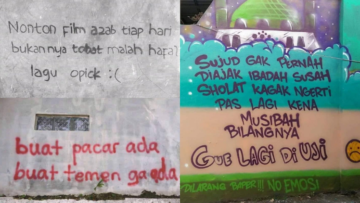 Nonton film azab tiap hari
bukannya tobat malah hafal
lagu opick :(
buat pacar ada
buat temen ga ada
SUJUD GAK PERNAH
DIAJAK IBADAH SUSAH
SHOLAT KAGAK NGERTI
PAS LAGI KENA
MUSIBAH
BILANGNYA
GUE LAGI DI UJI
DILARANG BAPER!!! NO EMOSI